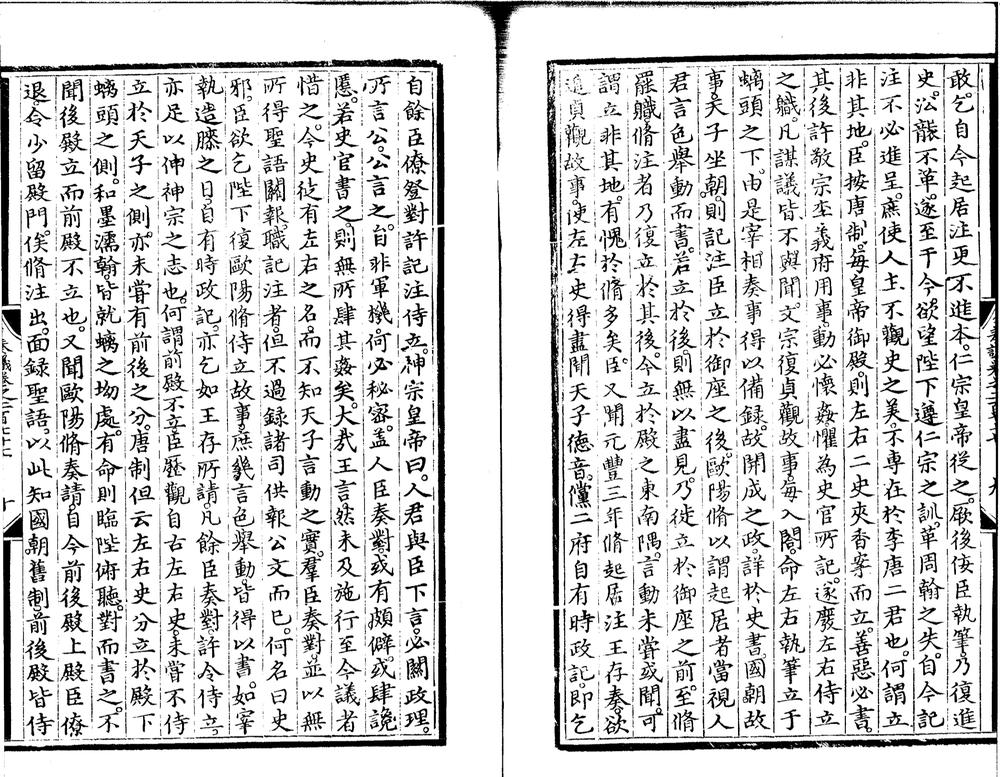 敢乞自今起居注更不進本仁宗皇帝從之厥後佞臣執筆乃復進
史訟襲不革遂至于今欲望陛下遵仁宗之訓革周翰之失自今記
注不必進呈庶使人主不觀史之美不專在於李唐二君也何謂立
非其地臣按唐制每皇帝御殿則左右二史夾香案而立善惡必書
其後許敬宗李義府用事動必懷姦懼為史官所記遂廢左右侍立
之職凡謀議皆不與聞文宗復貞觀故事每入閤命左右執筆立于
螭頭之下由是宰相奏事得以備錄故開成之政詳於史書國朝故
事天子坐朝則記注臣立於御座之後歐陽脩以謂起居者當視人
君言色舉動而書若立於後則無以盡見乃徙立於御座之前至脩
罷職脩注者乃復立於其後今立於殿之東南隅言動未嘗或聞可
謂立非其地有愧於脩多矣臣又聞元豐三年脩起居注王存奏欲
追貞觀故事使左右史得盡聞天子德音儻二府自有時政記即乞
自餘臣僚登對許記注侍立神宗皇帝曰人君與臣下言必關政理
所言公公言之自非軍機何必秘密蓋人臣奏對或有頗僻或肆讒
慝若史官書之則無所肆其姦矣大哉王言然未及施行至今議者
惜之今史徒有左右之名而不知天子言動之實羣臣奏對並以無
所得聖語關報職記注者但不過錄諸司供報公文而已何名曰史
邪臣欲乞陛下復歐陽脩侍立故事庶幾言色舉動皆得以書如宰
執造膝之日自有時政記亦乞如王存所請凡餘臣奏對許令侍立
亦足以伸神宗之志也何謂前殿不立臣歷觀自古左右史未嘗不侍
立於天子之側亦未嘗有前後之分唐制但云左右史分立於殿下
螭頭之側和墨濡翰皆就螭之坳處有命則臨陛俯聽對而書之不
聞後殿立而前殿不立也又聞歐陽脩奏請自今前後殿上殿臣僚
退令少留殿門俟脩注出面錄聖語以此知國朝舊制前後殿皆侍